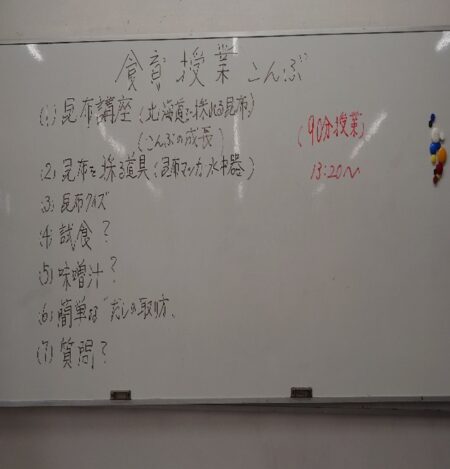 食育授業 こんぶ
(1) 昆布講座 (北海道で採れる昆布)
(こんぶの成長)
(90分授業)
(2) 昆布を採る道具 (昆布マッカ, 水中器)
13:20〜
(3) 昆布クイズ
(4) 試食?
(5) 味噌汁?
(6) 簡単な だしの取り方、
(7) 質問?